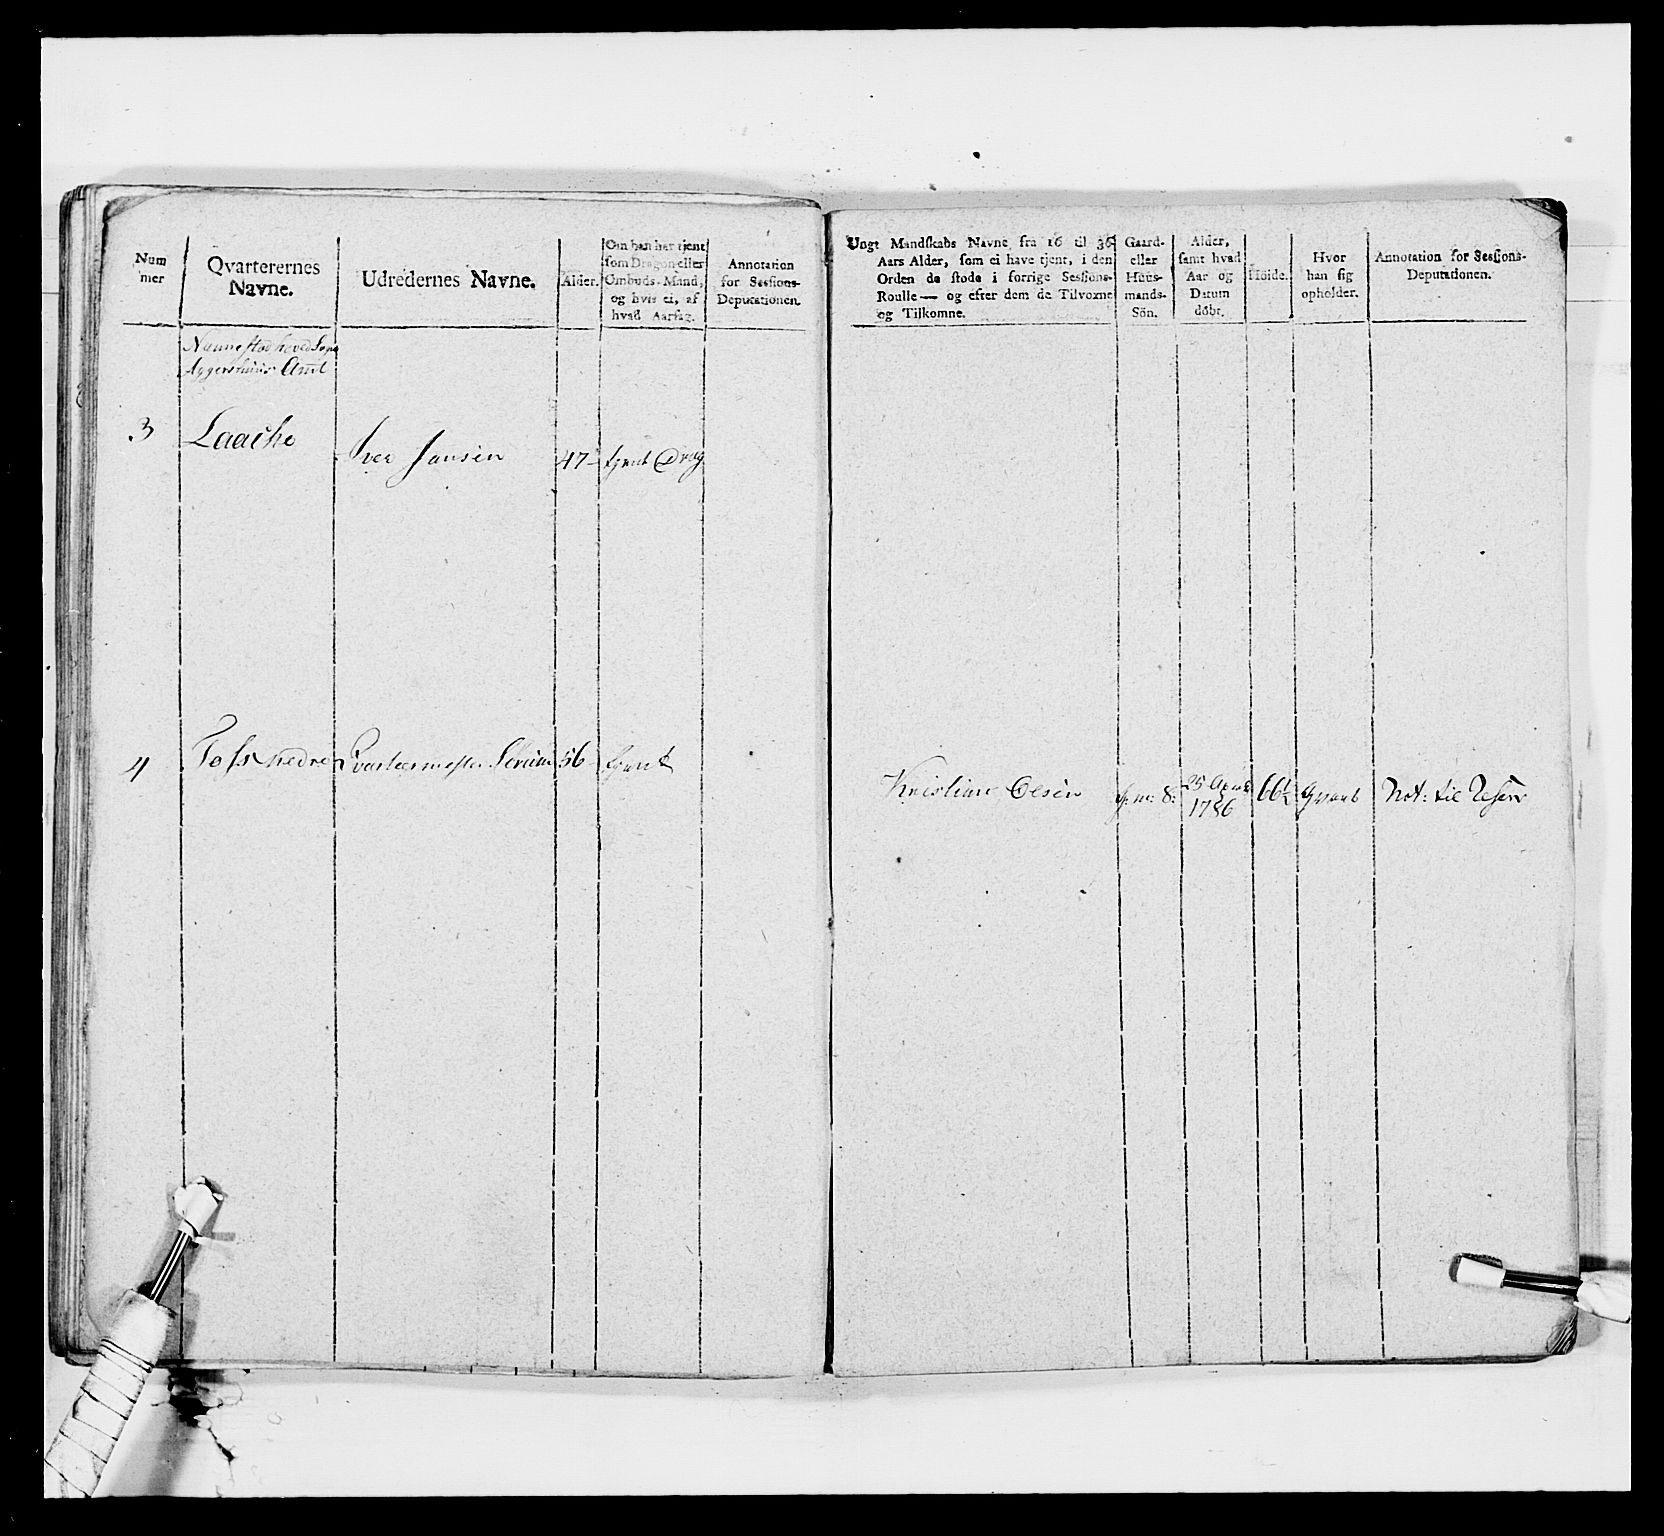 Num
mer
Qvarterernes
Navne.
Udredernes Navne.
Alder.
Om han har tjent
som Dragon eller
Ombuds-Mand,
og hvis ei, af
hvad Aarsag.
Annotation
for Sessions-
Deputationen.
Nannestad hoved Sogn
Aggershuus Amt
3
Laache
Iver Jansen
47
tjent Drag
4
Tofs nedre
Qvarteermester Sørum
56
tjent
Ungt Mandskabs Navne fra 16 til 36
Aars Alder, som ei have tjent, i den
Orden de stode i forrige Sessions-
Roulle — og efter dem de Tilvoxne
og Tilkomne.
Gaard-
eller
Huus-
mands-
Sön.
Alder,
samt hvad
Aar og
Datum
döbt.
Höide.
Hvor
han sig
opholder.
Annotation for Sessions-
Deputationen.
Kristian Olsen
25 April
1786
66½
Qvart
Not: til Reserv